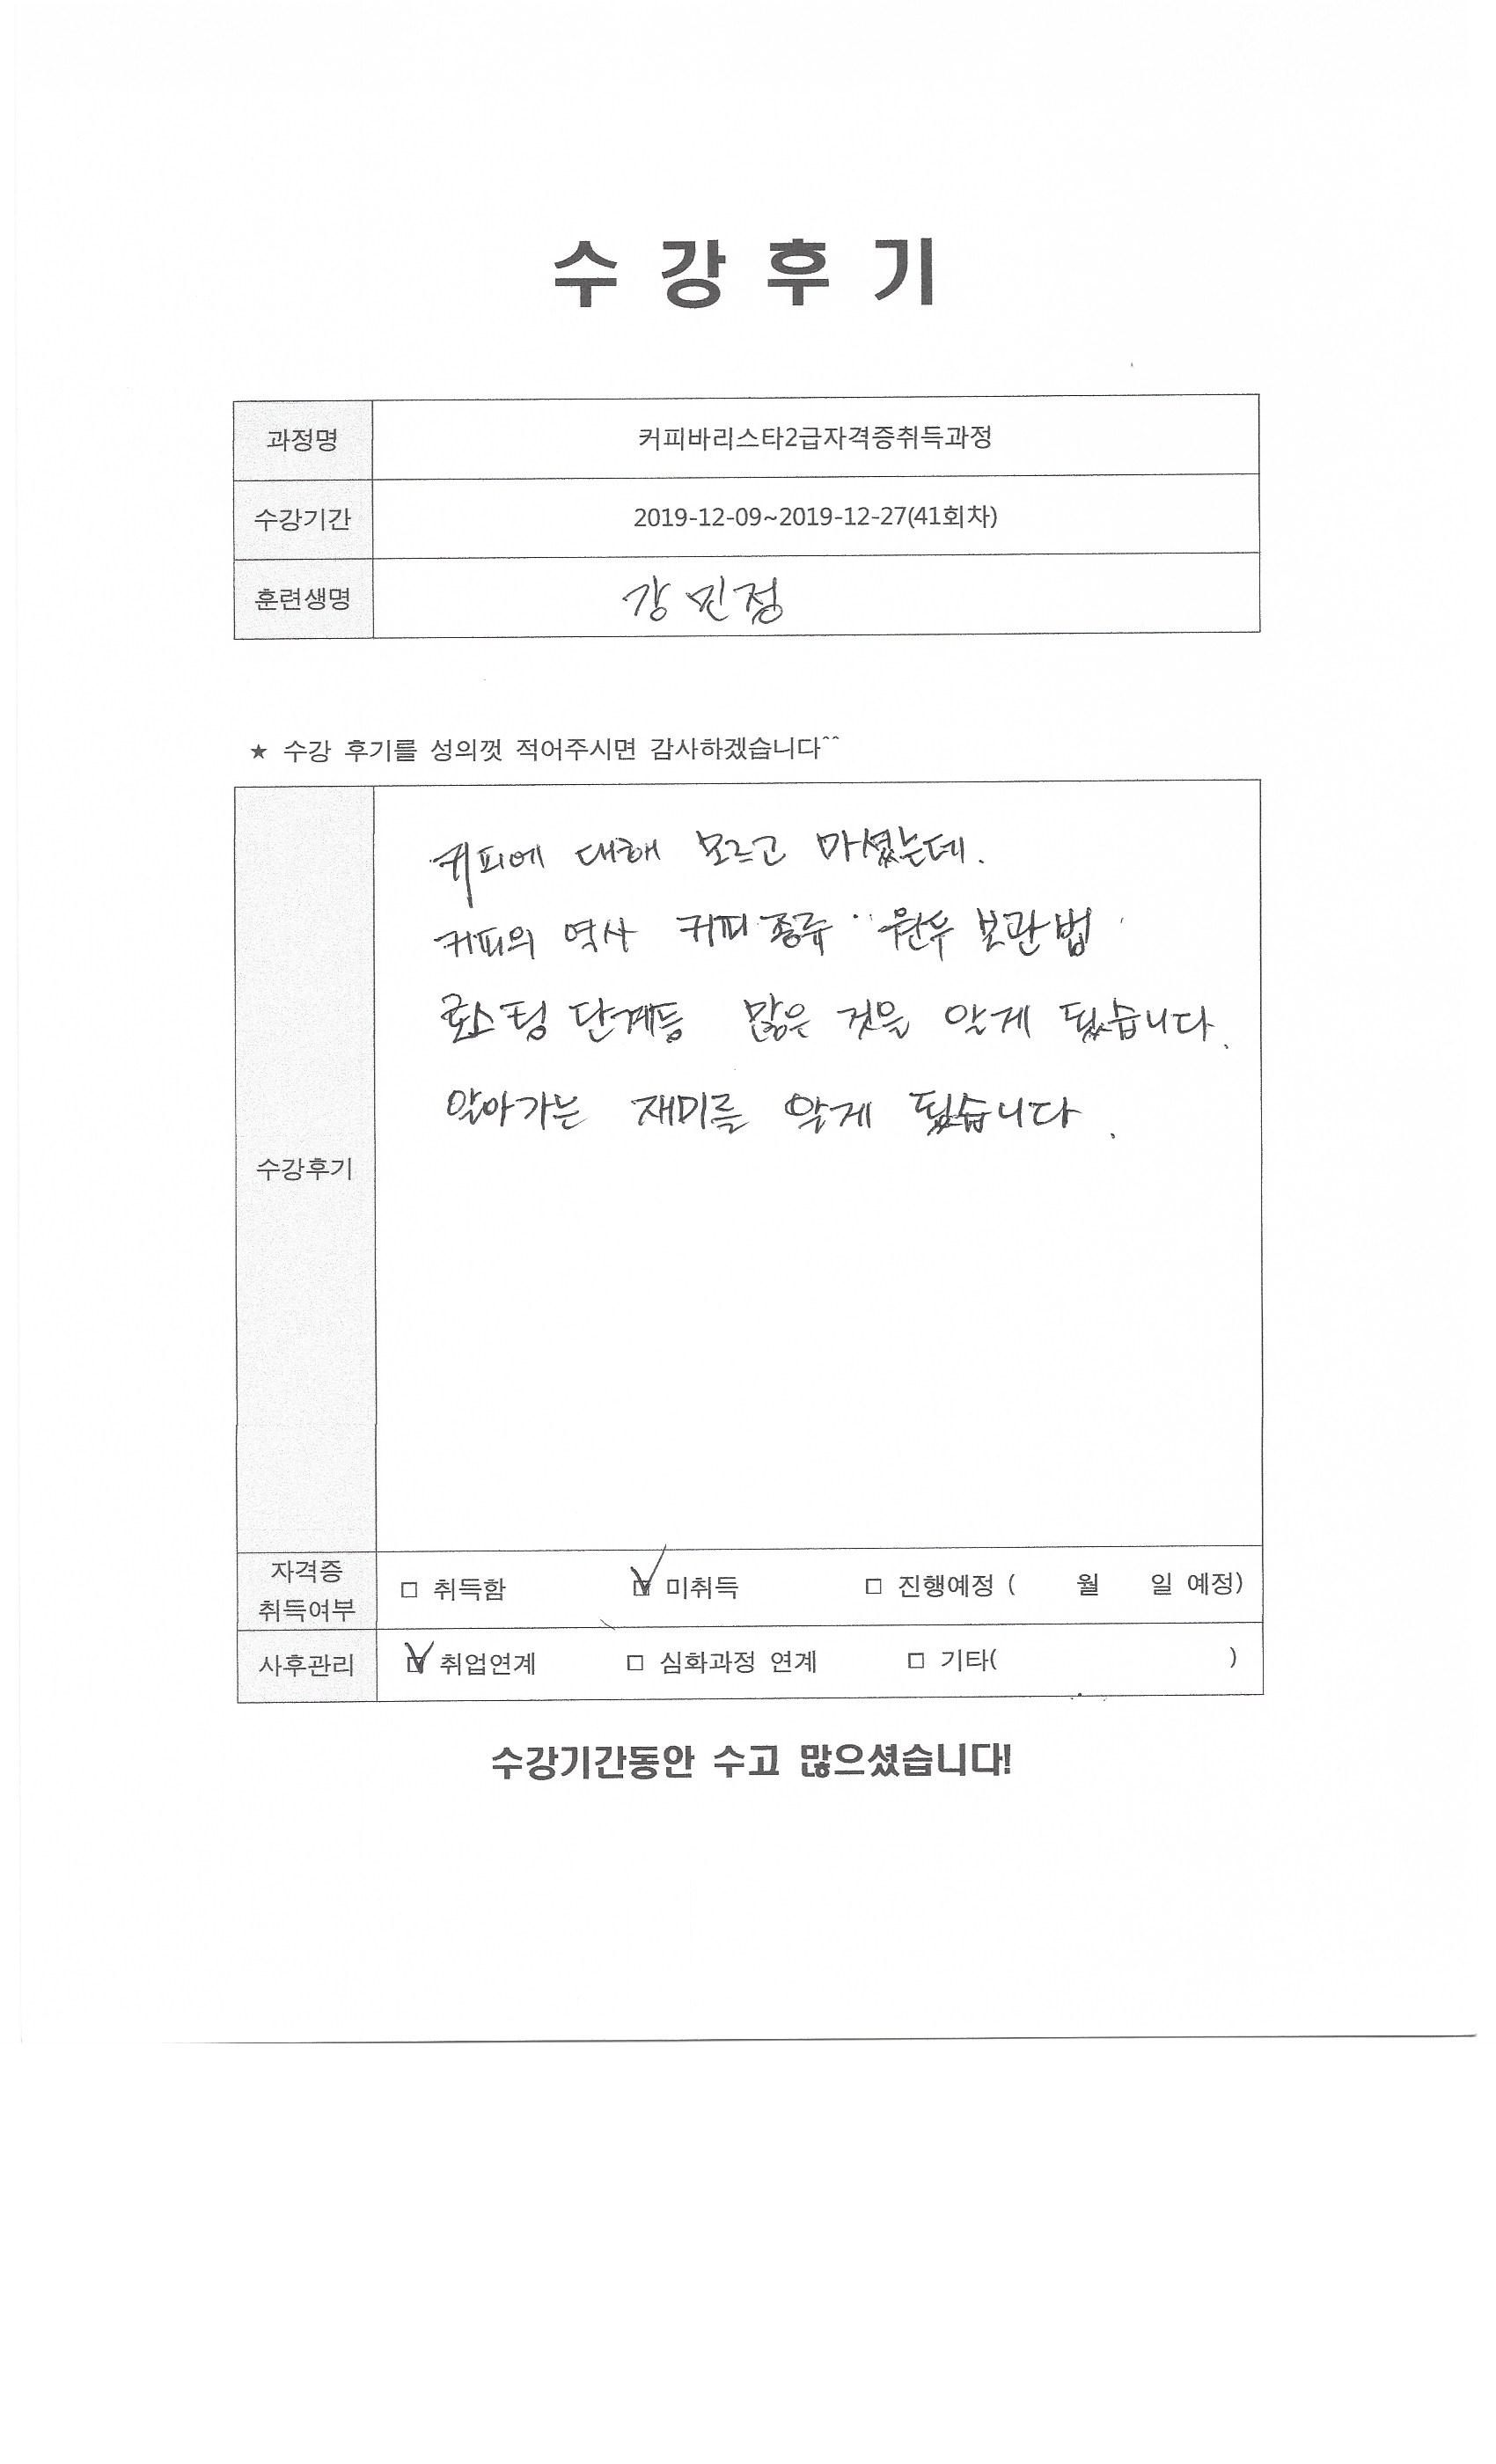 수강후기
과정명 커피바리스타2급자격증취득과정
수강기간 2019-12-09~2019-12-27(41회차)
훈련생명 강민정
★ 수강 후기를 성의껏 적어주시면 감사하겠습니다^^
커피에 대해 모르고 마셨는데.
커피의 역사 커피 종류 원두 보관법
로스팅 단계등 많은 것을 알게 됬습니다.
알아가는 재미를 알게 됬습니다.
수강후기
자격증 취득여부 □ 취득함 ☑ 미취득 □ 진행예정 ( 월 일 예정)
사후관리 ☑ 취업연계 □ 심화과정 연계 □ 기타( )
수강기간동안 수고 많으셨습니다!